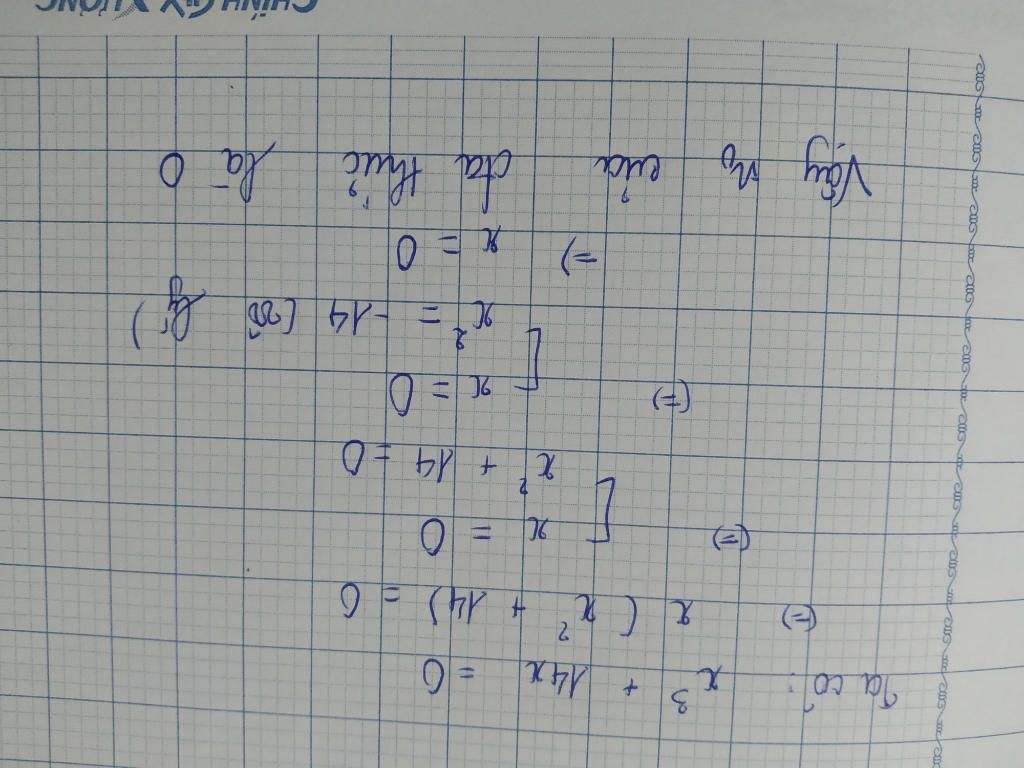 Ta có: x³ + 14x = 0
(=) x(x² + 14) = 0
(=) [ x = 0
x² + 14 = 0
(=) [ x = 0
x² = -14 (vô lý)
=) x = 0
Vậy n₀ của đa thức là 0
CHÍNH XƯƠNG